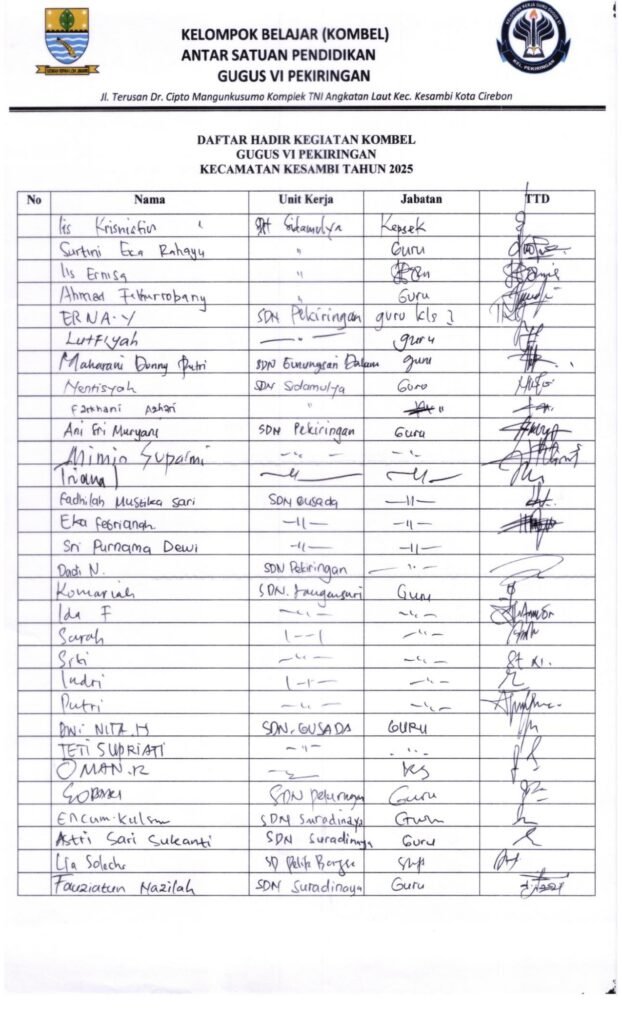 KELOMPOK BELAJAR (KOMBEL)
ANTAR SATUAN PENDIDIKAN
GUGUS VI PEKIRINGAN
Jl. Terusan Dr. Cipto Mangunkusumo Komplek TNI Angkatan Laut Kec. Kesambi Kota Cirebon
DAFTAR HADIR KEGIATAN KOMBEL
GUGUS VI PEKIRINGAN
KECAMATAN KESAMBI TAHUN 2025
No Nama Unit Kerja Jabatan TTD
Iis Sidamulya Kepsek
Surtini Eka Rahayu " Guru
Iis Ernisa "
Ahmad " Guru
ERNA-Y SDN Pekiringan guru kls
Lutfiyah — " — guru
Maharani Donny Putri SDN Gunungsari Dalam guru
Nentisyah SDN Sidamulya Guru
Farkhani Ashari " "
Ani Sri Muryani SDN Pekiringan Guru
Mimin Suparmi — " — — " —
Triana — " — — " —
Fadhilah Mustika Sari SDN Gusada — " —
Eka Febrianah. — " — — " —
Sri Purnama Dewi — " — — " —
Dadi N. SDN Pekiringan — " —
Komariah SDN. Guru
Ida F — " — — " —
Sarah — " — — " —
Siti — " — — " —
Indri — " — — " —
Putri — " — — " —
DWI NITA.H SDN. GUSADA GURU
TETI SUPRIATI — " — — " —
OMAN.R — " — KS
SDN Pekiringan Guru
Encum.kulsm SDN Suradinaya Guru
Astri Sari Sukanti SDN Suradinaya Guru
Lia SD
Fauziatun Nazilah SDN Suradinaya Guru